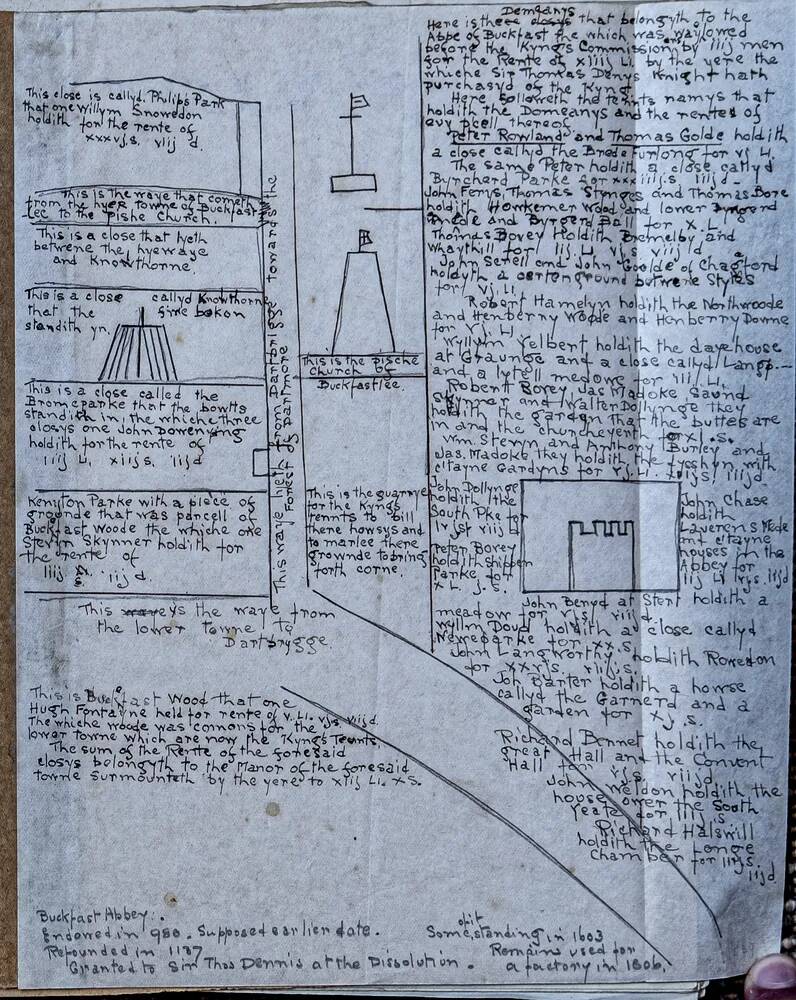 This close is callyd. Philips Park
that one Willym Snowedon
holdith for the rente of
xxxvj.s. viij d.
This is the waye that cometh
from the hyer towne of Buckfast
-lee to the Pishe Church.
This is a close that lyeth
betwene the hyerwaye
and Knowthorne.
This is a close callyd Knowthorne
that the fire bekon
standith yn.
This is a close called the
Bromeparke that the bowtts
standith in, the whiche three
closys one John Dowenying
holdith for the rente of
iiij Li. xiij s. iiijd
Kenyton Parke with a piece of
grounde that was parcell of
Buckfast Woode the whiche one
Stevyn Skynner holdith for
the rente of
iiij s. iijd.
This waye lieth from Dartbrigge towards the
Forest of Dartmore
This is the pische
Church of
Buckfastlee.
This is the quarrye
for the Kyngs
tennts to bill
there howsys and
to marlee there
grownde to bring
forth corne.
This weys the waye from
the lower towne to
Dartbrygge.
This is Buckfast Wood that one
Hugh Fontayne held for rente of v. Li. vjs. viijd.
The whiche woode was comons for the
lower towne which are now the Kyngs Tennts.
The sum of the Rente of the foresaid
closys belongyth to the Manor of the foresaid
towne surmounteth by the yere to xiij Li. x S.
Demeanys
Here is these closys that belongyth to the
Abbe of Buckfast the which was valowed
before the Kyngs Commission by iiij men
for the Rente of xiiij Li. by the yere the
whiche Sir Thomas Denys Knight hath
purchasyd of the Kyng
Here followeth the tennts namys that
holdith the Domeanys and the rentes of
evy pcell thereof
Peter Rowland and Thomas Golde holdith
a close callyd the Brodefurlong for vj Li.
The same Peter holdith a close callyd
Burchard Parke for xxxiiijs iiijd.
John Ferys, Thomas Stynges and Thomas Bore
holdith Howkemer Wood and lower
Mede and Byrgerd Ball for x. L.
Thomas Bovey Holdith Bremelby and
Whaythill for iij Li vjs viijd
John Serell and John Goolde of Chagford
holdyth a certenground betwene Styles
for vj. Li.
Robert Hamelyn holdith the Northwoode
and Henberry Woode and Henberry Downe
for vj. Li
Wyllym Yelbert holdith the dayehouse
at Graunge and a close callyd Langp.—
and a lytell medowe for iij Li.
Robert Bovey Jas Madoke Savnd
Skynner and Walter Dollynge they
holdith the garden that the buttes are
in and the churcheyerth for xj. s.
Wm Stevyn and Anthony Burley and
Jas. Madoke they holdith the fysshyn with
c'tayne Gardyns for vj. Li. xiijs/ iiijd.
John Dollynge
holdith the
South Pke for
lvjs viijd
Peter Bovey
holdith shippen
Parke for
x L. j. s.
John Chase
holdith
Laverens Mede
and c'tayne
houses in the
Abbey for
iij Li vjs. iijd
John Benyd at Stert holdith a
meadow for vjs viijd.
Wyllm Doud holdith a close callyd
Neweparke for xx.s.
John Langworthy holdith Rowedon
for xxvjs viijs.
John Barter holdith a howse
callyd the Garnerd and a
garden for xj s.
Richard Bennet holdith the
great Hall and the Convent
Hall for vjs. viijd
John Weldon holdith the
house over the South
Yeate for iiij s
Richard Halswill
holdith the longe
Chamber for iijs.
iijd
Buckfast Abbey:.
Endowed in 980. Supposed earlier date.
Refounded in 1137
Granted to Sir Thos Dennis at the Dissolution.
Some of it standing in 1603
Remains used for
a factory in 1806.